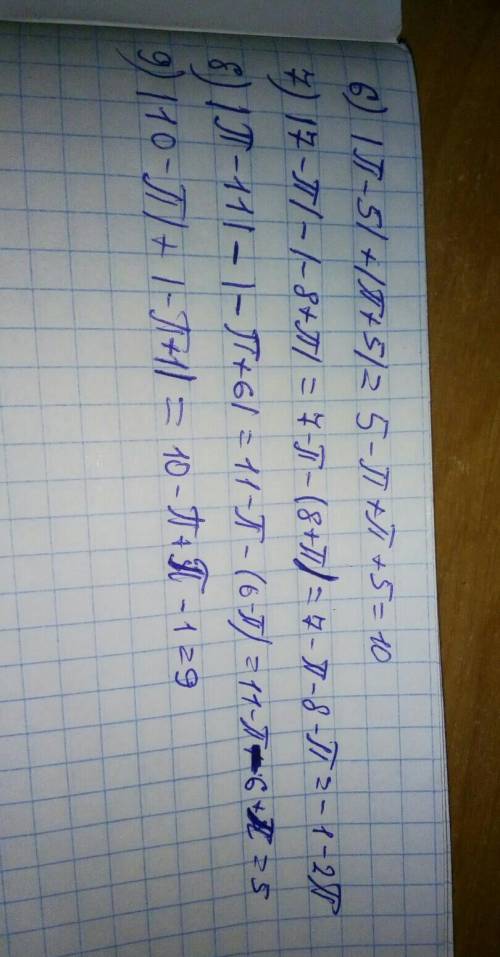 6) |π-5|+|π+5|= 5-π+π+5=10
7) |7-π|-|-8+π| = 7-π-(8+π)=7-π-8-π=-1-2π
8) |π-11|-|-π+6|=11-π-(6-π)=11-π-6+π=5
9) |10-π|+|-π+1|=10-π+π-1=9